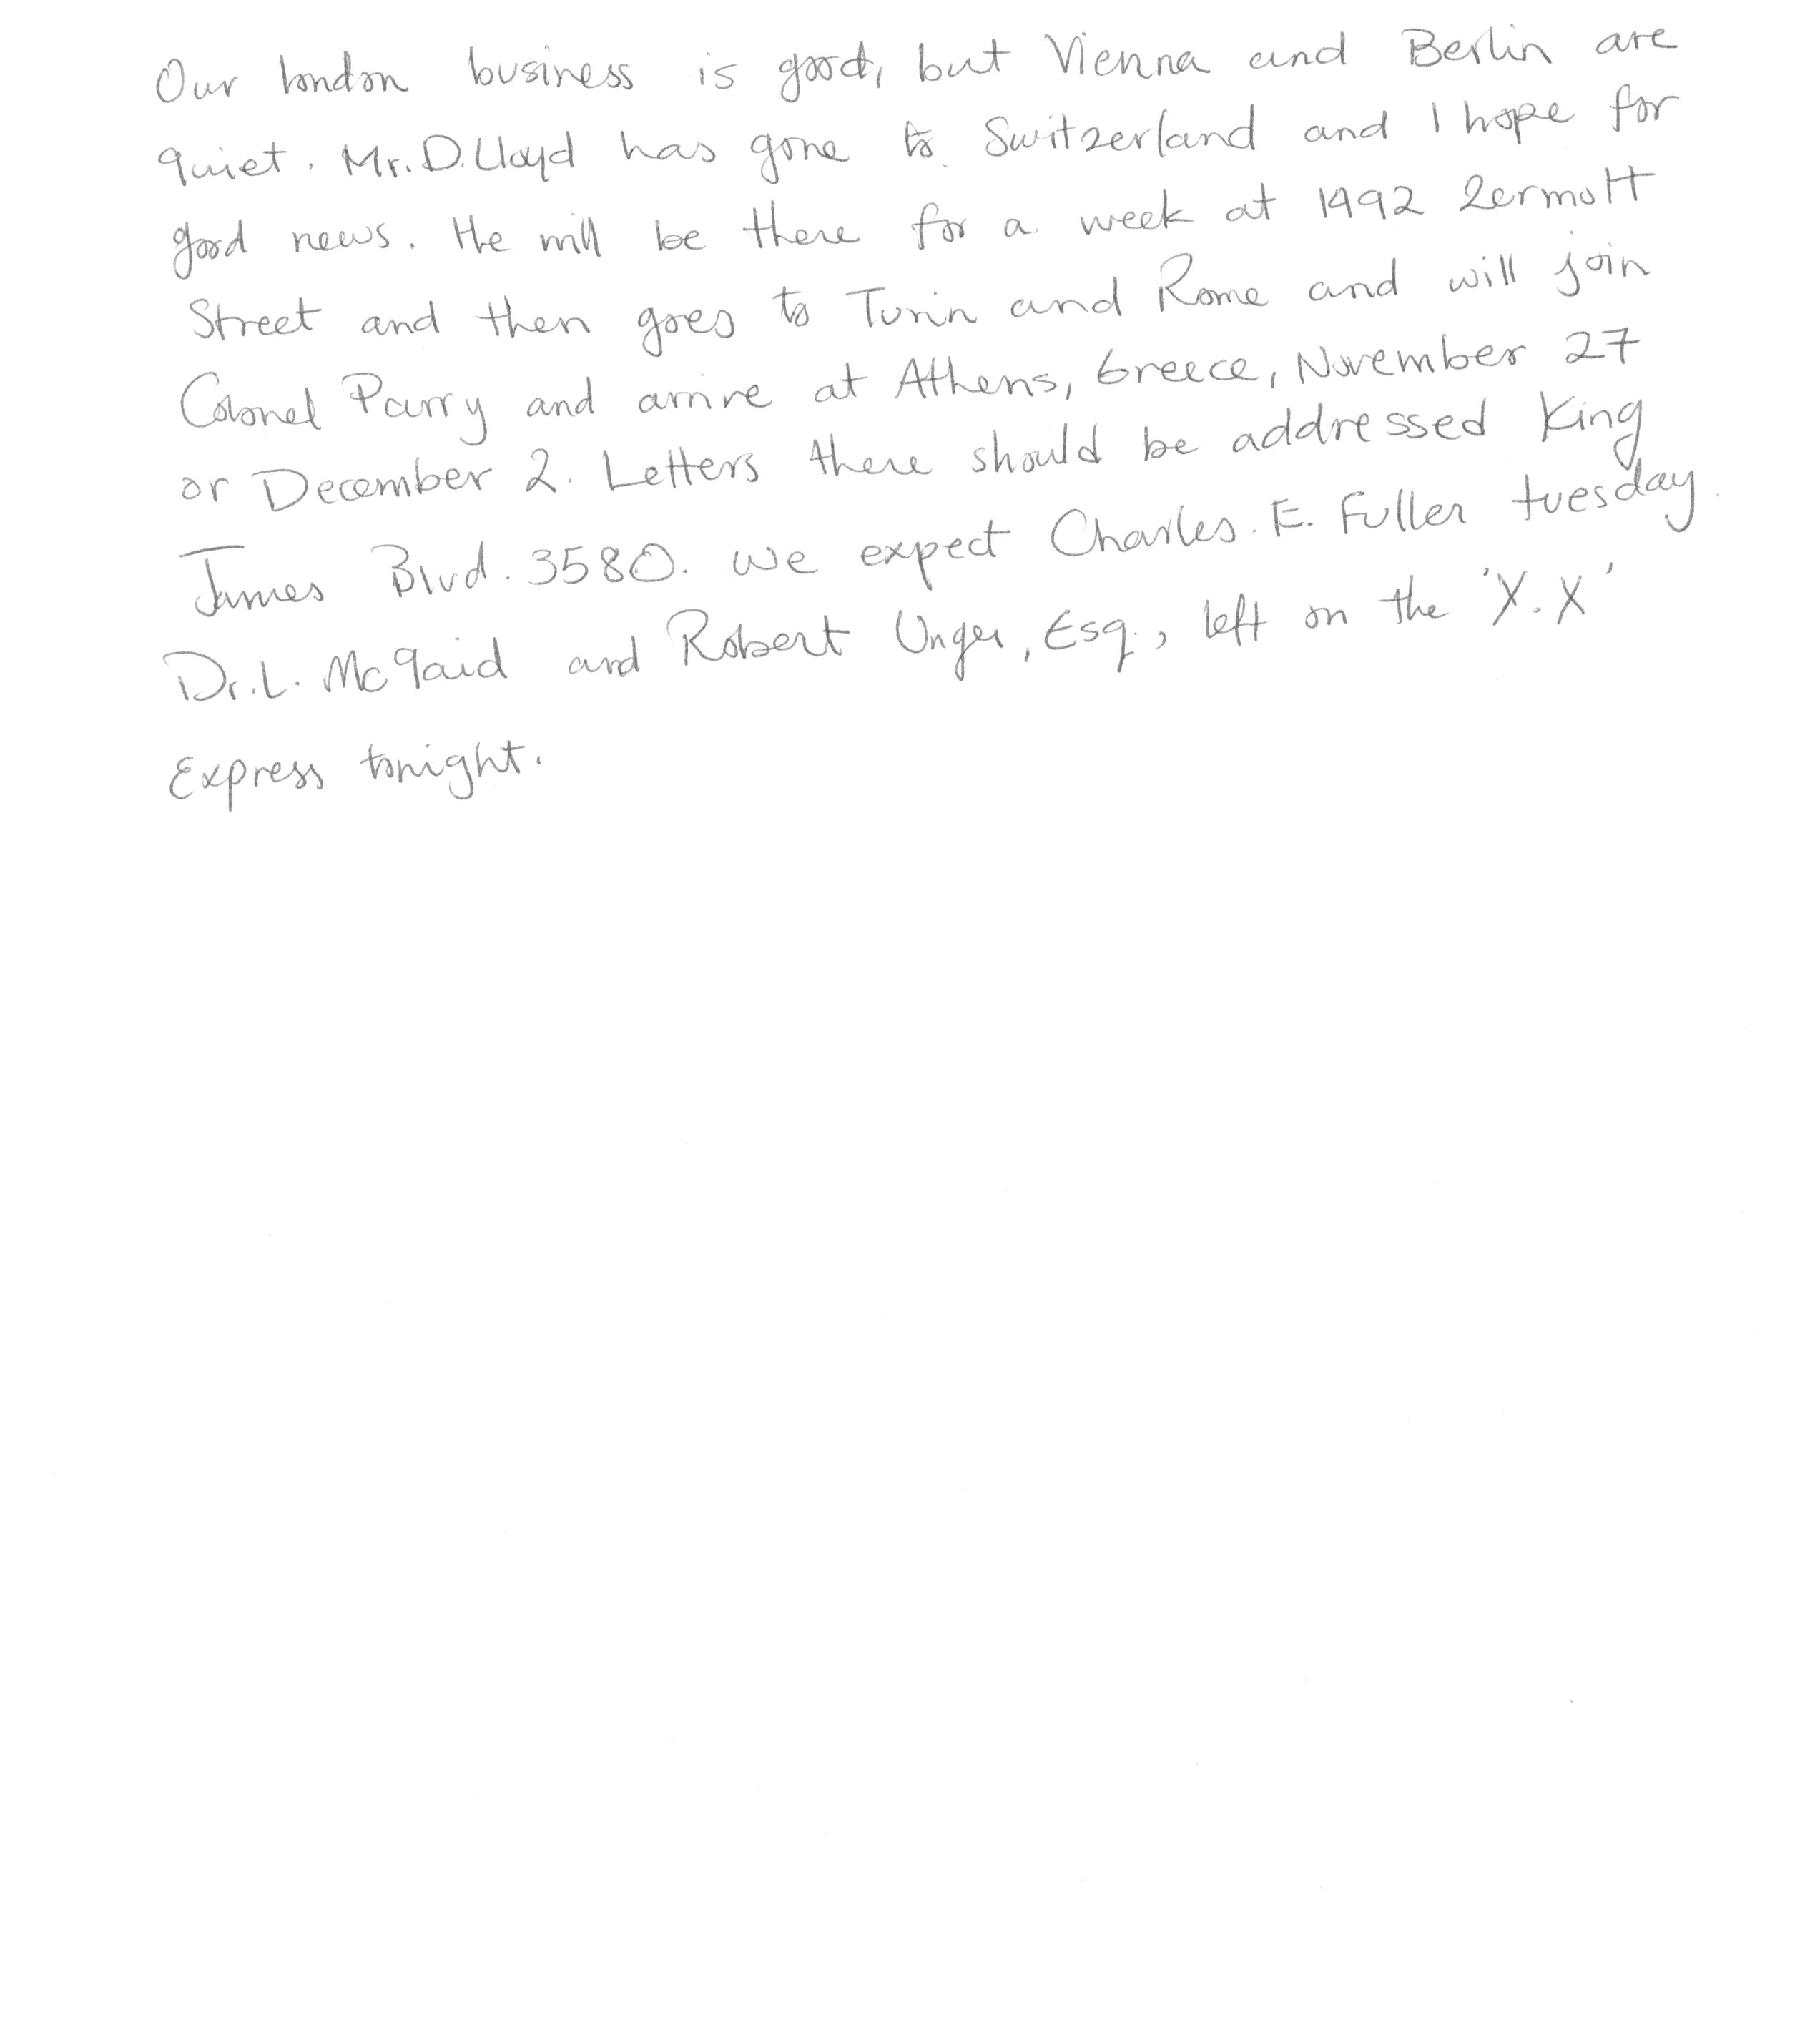 Our london business is good, but Vienna and Berlin are
quiet. Mr. D. Lloyd has gone to Switzerland and I hope for
good news. He will be there for a week at 1492 Zermott
Street and then goes to Turin and Rome and will join
Colonel Parry and arrive at Athens, Greece, November 27
or December 2. Letters there should be addressed King
James Blvd. 3580. We expect Charles. E. Fuller tuesday.
Dr. L. McQaid and Robert Unger, Esq., left on the 'X.X'
Express tonight.